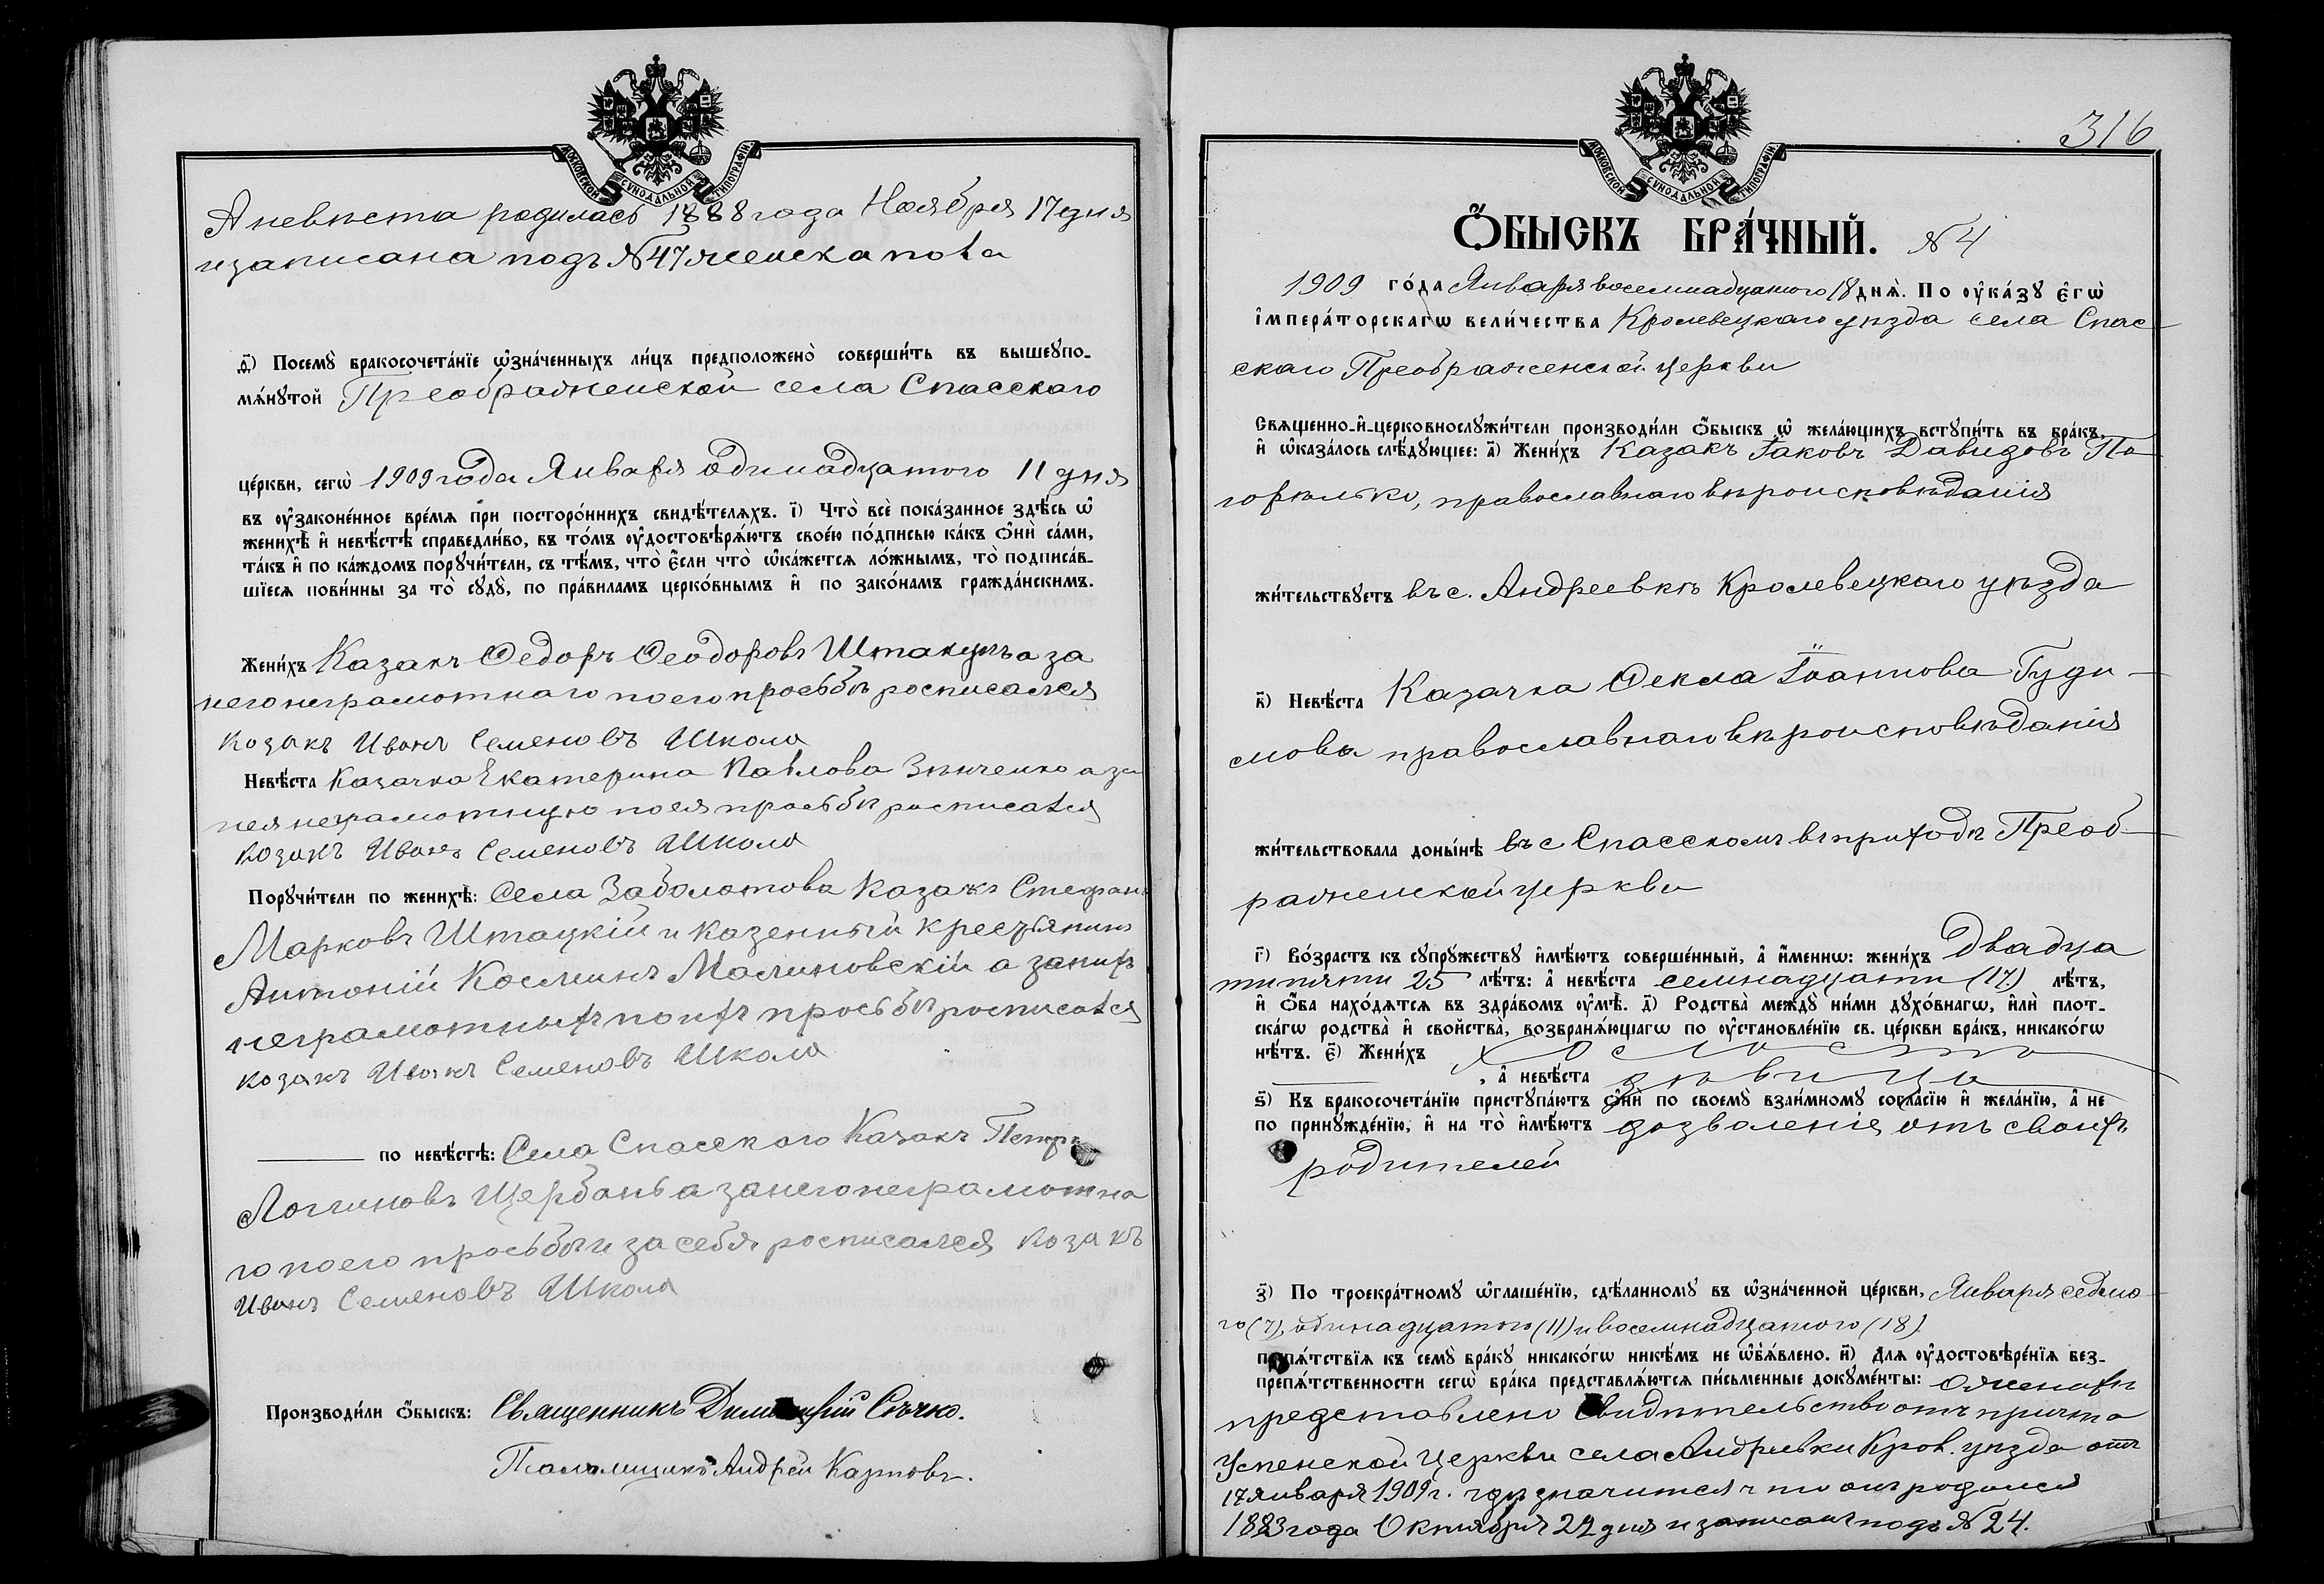 МОСКОВСКОЙ СѴНОДАЛЬНОЙ ТИПОГРАФІИ
А невѣста родилась 1888 года Ноября 17 дня
и записана подъ № 47 женска пола
д҃і) Посемꙋ̀ бракосочета́нїе ѡ҆зна́ченныхъ ли́цъ предположено̀ соверши́ть въ вышеꙋпо-
мѧ́нꙋтой Преображенской села Спасскаго
це́ркви, сегѡ̀ 1909 года Января одинадцатого 11 дня
въ ᲂу҆законе́нное вре́мѧ при посторо́ннихъ свидѣ́телѧхъ. і҃) Что̀ всѐ пока́занное здѣ́сь ѡ҆
женихѣ̀ и҆ невѣ́стѣ справедли́во, въ то́мъ ᲂу҆достовѣрѧ́ютъ свое́ю по́дписью ка́къ ѻ҆нѝ са́ми,
та́къ и҆ по ка́ждомъ порꙋчи́тели, съ тѣ́мъ, что̀ є҆́сли что̀ ѡ҆ка́жется ло́жнымъ, то̀ подписа́в-
шїесѧ пови́нны за то̀ сꙋдꙋ̀, по пра́виламъ церко́внымъ и҆ по зако́намъ гражда́нскимъ.
Жени́хъ Казакъ Ѳедоръ Ѳеодоровъ а за
него неграмотнаго по его просьбѣ росписался
козакъ Иванъ Семеновъ Школа
Невѣ́ста Казачка Екатерина Павлова Зинченко а за
нея неграмотную по ея просьбѣ росписался
козакъ Иванъ Семеновъ Школа
Порꙋчи́тели по женихѣ̀: Села Заболотова Казакъ Стефанъ
Марковъ Штацкій и казенный крестьянинъ
Антоній Космин Малиновскій а за нихъ
неграмотныхъ по ихъ просьбѣ росписался
козакъ Иванъ Семеновъ Школа
по невѣ́стѣ: Села Спасского Казакъ Петръ
Логиновъ Щербань а за него неграмотна
го по его просьбѣ и за себя росписался козакъ
Иванъ Семеновъ Школа
Производи́ли ѻ҆́быскъ: Священникъ Димитрій Сѣчко.
Псаломщикъ Андрей Карповъ.
316
МОСКОВСКОЙ СѴНОДАЛЬНОЙ ТИПОГРАФІИ
Ѻ҆́БЫСКЪ БРА́ЧНЫЙ. № 4
1909 го́да Января восемнадцатого 18 днѧ̀. По ᲂу҆ка́зꙋ є҆гѡ̀
і҆мпера́торскагѡ вели́чества Кролевецкаго уѣзда села Спас-
скаго Преображенской церкви
Свѧще́нно-и҆-церковнослꙋжи́тели производи́ли ѻ҆́быскъ ѡ҆ жела́ющихъ встꙋпи́ть въ бра́къ,
и҆ ѡ҆каза́лось слѣ́дꙋющее: а҃) Жени́хъ Казакъ Іаковъ Давидовъ По
горѣлько, православнаго вѣроисповѣданія
жи́тельствꙋетъ въ с. Андреевкѣ Кролевецкаго уѣзда
в҃) Невѣ́ста Казачка Ѳекла Іоаннова Гуди-
мова православнаго вѣроисповѣданія
жи́тельствовала доны́нѣ въ с Спасскомъ въ приходѣ Преоб-
раженской церкви
г҃) Во́зрастъ къ сꙋпрꙋ́жествꙋ и҆мѣ́ютъ соверше́нный, а҆ и҆́менно: жени́хъ двадца
типяти 25 лѣ́тъ: а҆ невѣ́ста семнадцати (17.) лѣ́тъ,
и҆ ѻ҆́ба нахо́дѧтсѧ въ здра́вомъ ᲂу҆мѣ̀. д҃) Родства̀ междꙋ̀ ни́ми дꙋхо́внагѡ, и҆лѝ плот-
ска́гѡ родства̀ и҆ сво́йства̀, возбранѧ́ющагѡ по ᲂу҆становле́нїю св. це́ркви бра́къ, никако́гѡ
нѣ́тъ. є҃) Жени́хъ холостъ
, а҆ невѣ́ста дѣвица
ѕ҃) Къ бракосочета́нїю пристꙋпа́ютъ ѻ҆нѝ по своемꙋ̀ взаи́мномꙋ согла́сїю и҆ жела́нїю, а҆ не
по принꙋжде́нїю, и҆ на то̀ и҆мѣ́ютъ дозволенія отъ своихъ
родителей
з҃) По троекра́тномꙋ ѡ҆глаше́нїю, сдѣ́ланномꙋ въ ѡ҆зна́ченной це́ркви, Января седьмо-
го (7), одинадцатого (11) и восемнадцатого (18)
препѧ́тствїѧ къ семꙋ̀ бра́кꙋ никако́гѡ никѣ́мъ не ѡ҆б̾ѧ́влено. и҃) Длѧ ᲂу҆достовѣре́нїѧ без-
препѧ́тственности сегѡ̀ бра́ка представлѧ́ютсѧ пи́сьменные докꙋме́нты: О женихѣ
представлено Свидѣтельство отъ причта
Успенской Церкви села Андреевки Кров. уѣзда отъ
17 января 1909 г. гдѣ значится что онъ родился
1883 года Октября 22 дня и записанъ подъ № 24.